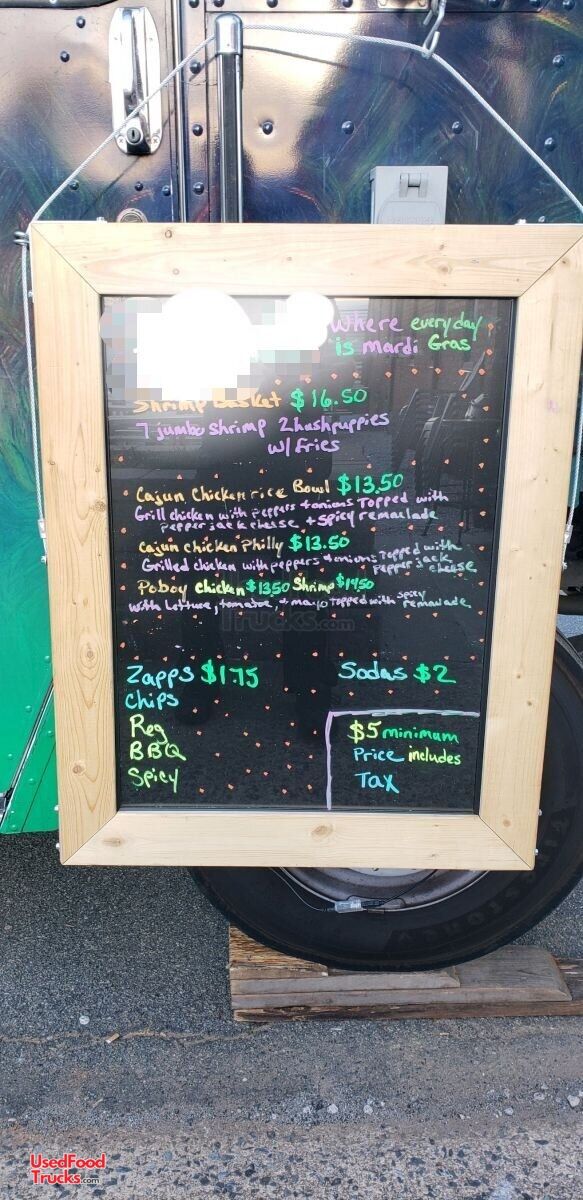 Where everyday
is mardi Gras
Shrimp Basket $16.50
7 jumbo shrimp 2 hushpuppies
w/ Fries
Cajun Chicken rice Bowl $13.50
Grill chicken with peppers + onions Topped with
pepper jack cheese + spicy remaulade
Cajun chicken Philly $13.50
Grilled chicken with peppers + onions Topped with
pepper jack
cheese
Poboy chicken $13.50 Shrimp $14.50
spicy
with Lettuce, tomatoe, + mayo Topped with remaulade
Trucks.com
Zapps $1.75
Chips
Reg
BBQ
Spicy
Sodas $2
$5 minimum
Price includes
Tax
Firestone
UsedFood
Trucks.com